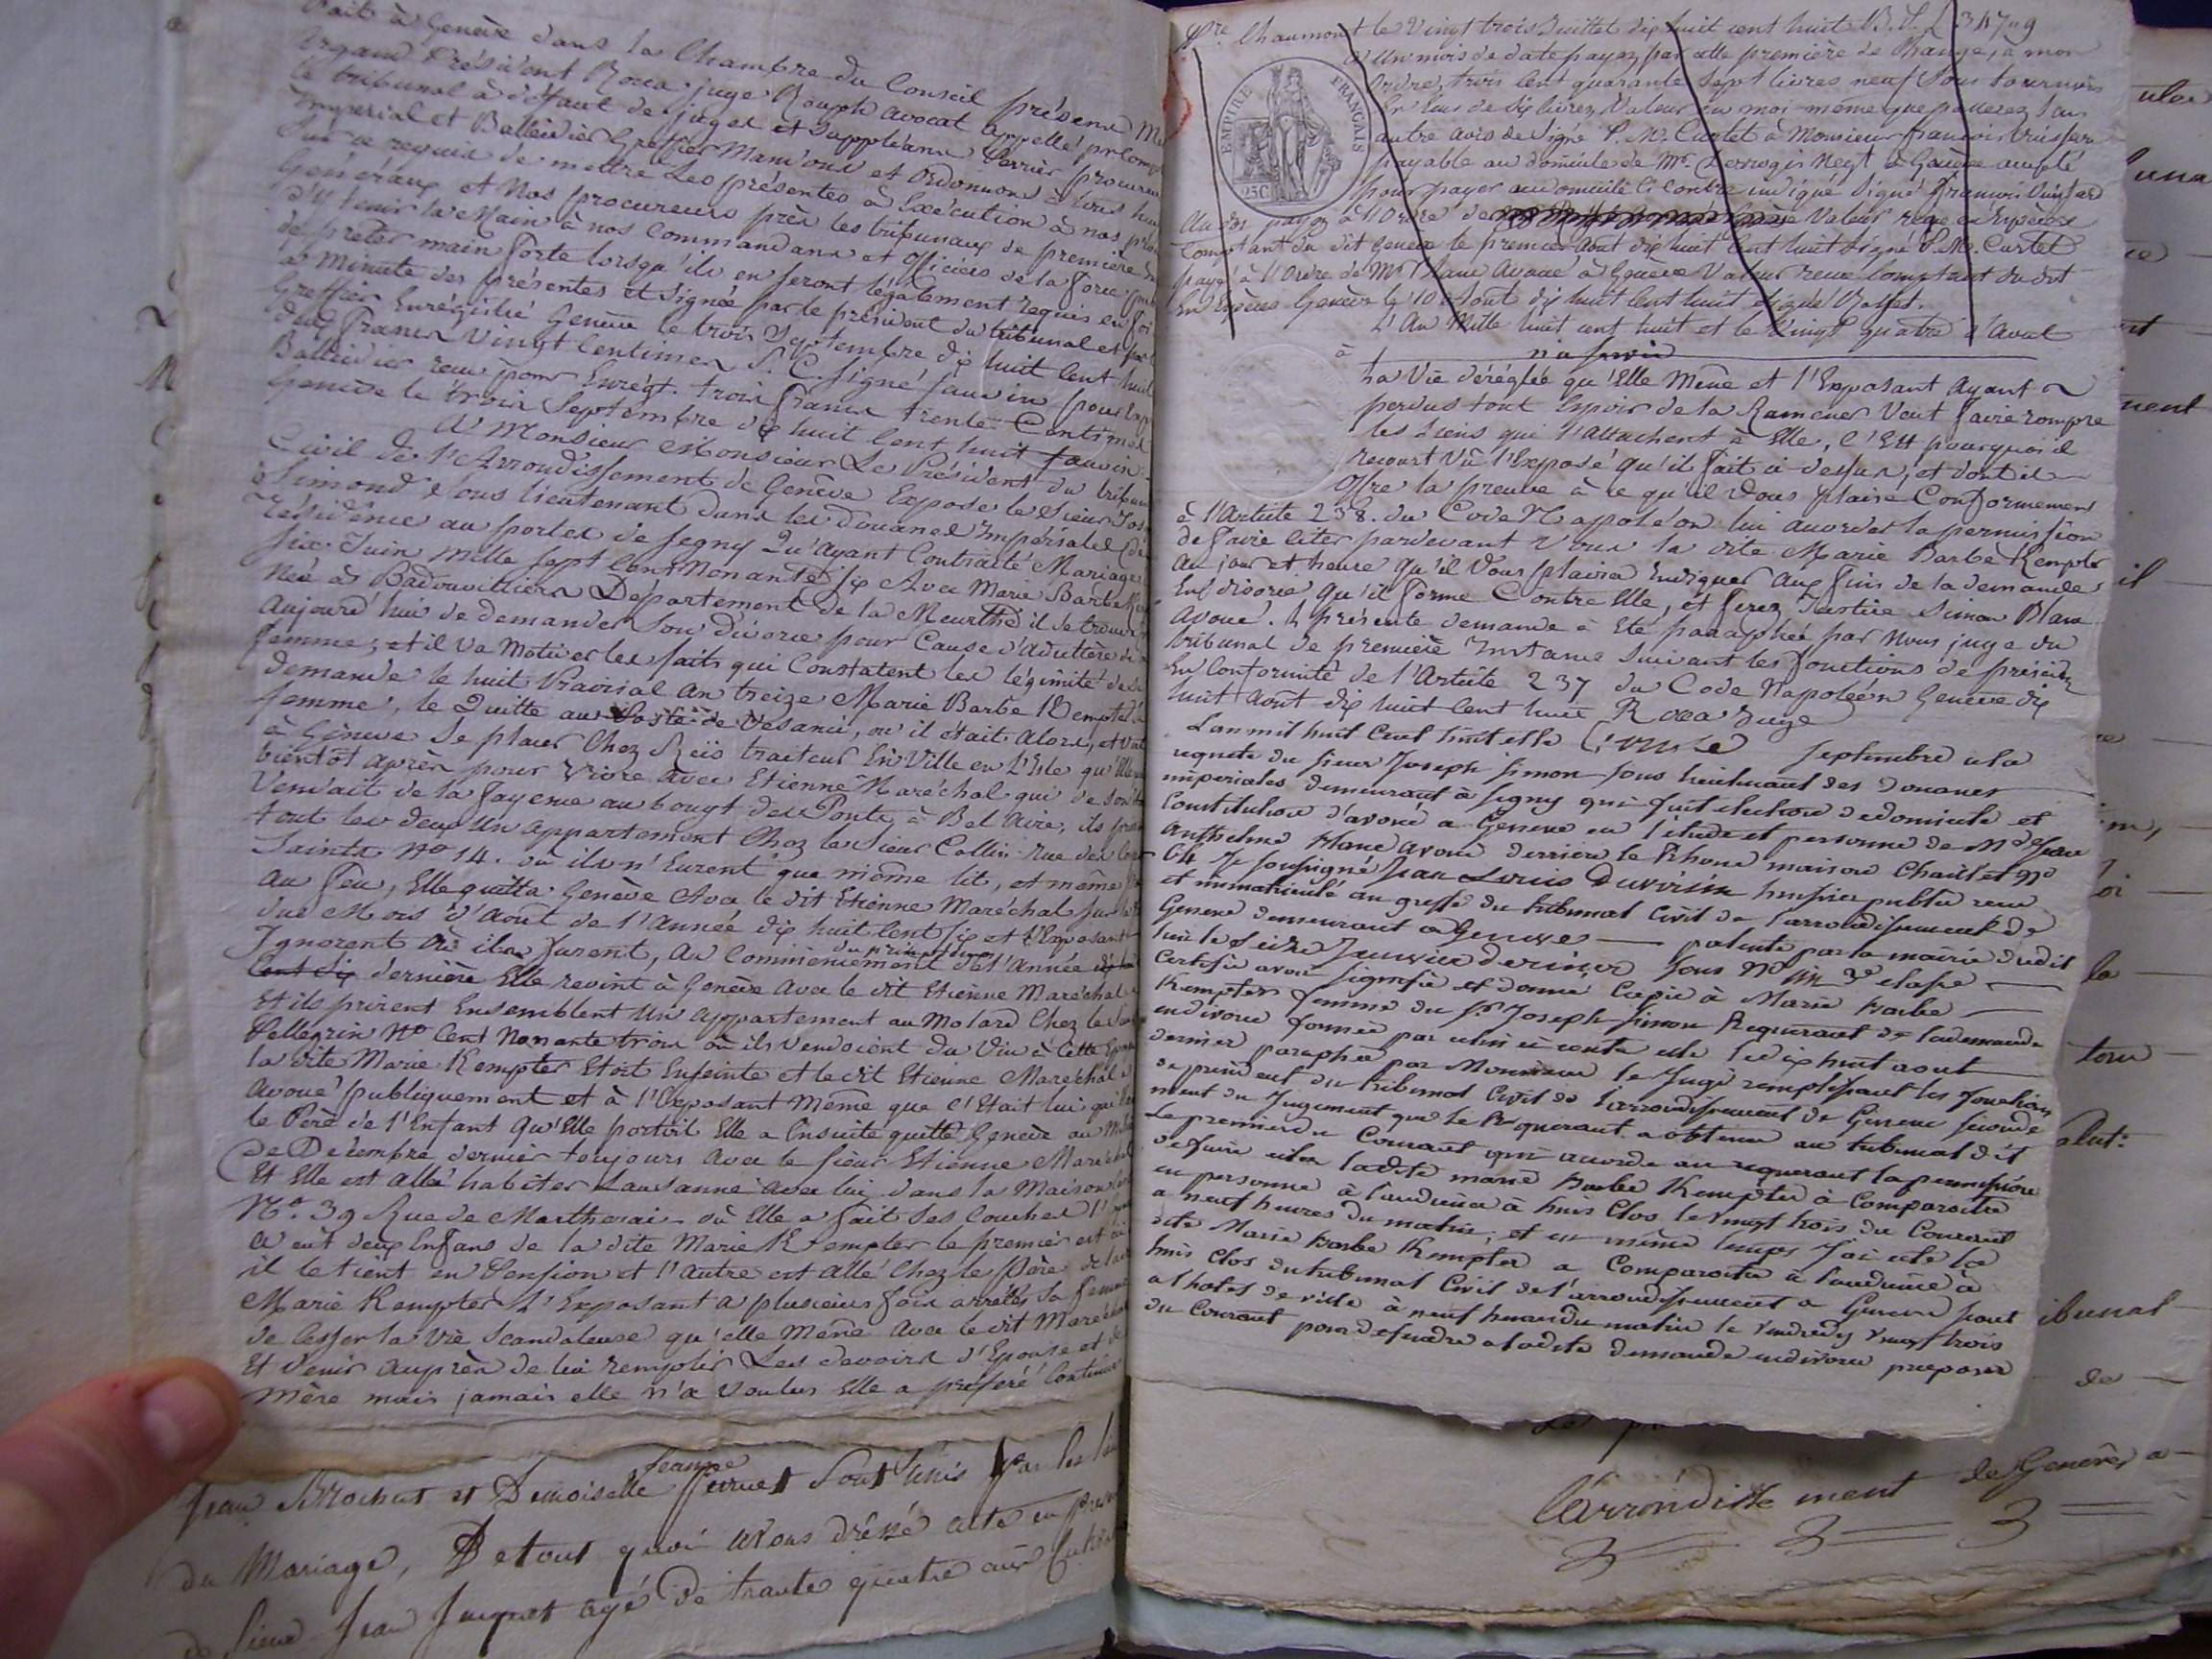 Fait à Genève dans la Chambre du Conseil présens M
Argand Président Roca juge Rouph avocat appellé pr Comp
le tribunal à défaut de juges et Suppléans Perrier procureur
Impérial et Balleidier Greffier Mandons et Ordonnons à tous hui
Sur ce requis de mettre Les présentes à Exécution à nos pro
Généraux et Nos procureurs près les tribunaux de première In
d'y tenir la Main à nos Commandans et Officiers de la force pub
de prêter main forte lorsqu'ils en seront légalement requis en foi
la Minute des présentes est Signée par le président du tribunal et par
Greffier Enrégistré Genève le trois Septembre dix huit Cent huit
deux francs Vingt Centimes S. C. Signé Fauvin pour Exp
Balleidier reçu pour Enrégt. trois francs trente Centimes
Genève le trois Septembre dix huit Cent huit Fauvin
A Monsieur Monsieur Le Président du tribunal
Civil de l'Arrondissement de Genève Expose le Sieur Jos
Simond Sous lieutenant dans les douanes Impériales de
résidence au poste de Segny Qu'ayant Contracté Mariage
six Juin mille Sept Cent Nonante Six Avec Marie Barbe Kem
Née à Badonvilliers Département de la Meurthe il se trouve
aujourd'hui de demander Son divorce pour Cause d'adultère de
femme; et il va Motiver les faits qui Constatent la légimité de sa
demande le huit Prairial An treize Marie Barbe Kempter
femme, le Quitte au Poste de Vesancî, où il était Alors, et vint
à Genève Se placer Chez Reïs traiteur En Ville en L'Isle qu'Elle
bientôt après pour Vivre Avec Etienne Maréchal qui de Son
Vendait de la fayence au bougt des Ponts à Bel Aire, ils pri
tout les deux Un appartement Chez le Sieur Collin rue des
Saints No 14. où ils n'Eurent que même lit, et même
au feu, Elle quitta Genève Avec le dit Etienne Maréchal sur
du Mois d'Août de l'Année dix huit Cent Six et l'Exposant
Ignorent Où ils furent, Au Commencement du printems de l'Année
Cent Six dernière Elle revint à Genève Avec le dit Etienne Maréchal
Et ils prirent Ensemblent Un appartement au Molard Chez le Sieur
Pellegrin No Cent Nonante trois où ils Vendoient du Vin à Cette Epoque
la dite Marie Kempter Etoit Enceinte et le dit Etienne Maréchal a
Avoué publiquement et à l'Exposant Même que C'Etait lui qui
le Père de l'Enfant Qu'Elle portoit Elle a Ensuite quitté Genève au Mois
de Décembre dernier toujours Avec le Sieur Etienne Maréchal
Et Elle est allé habiter Lausanne avec lui dans la Maison
No. 39 Rue de Martherai où Elle a fait Ses Couches l'Exposant
a eût deux Enfans de la dite Marie Kempter le premier est
il le tient en Pension et l'autre est allé Chez le Père de la
Marie Kempter L'Exposant a plusieurs fois arrettes Sa femme
de Cesser la vie Scandaleuse qu'elle Mène Avec le dit Maréchal
Et Venir auprès de lui remplir Les devoirs d'Epouse et de
Mère mais jamais elle n'a Voulus Elle a préféré Continuer
Jean Brochut et Demoiselle Jeanne Perruet Sont Unis par les liens
du Mariage, De tout quoi avons dréssé acte en prés
de Sieur Jean Juquet agé De trante quatre ans
Chaumont le Vingt trois Juillet dix huit cent huit B. P. L 347,, 9
à Un mois de date payez par cette première de Change, à mon
Ordre, trois Cent quarante Sept livres neuf Sous tournois
En Ecus de Six livres Valeur en moi-même que passerez Sans
autre avis de Signé P. M. Curtet à Monsieur françois Vuissard
payable au domicile de Mr. Derrogis Negt à Genève accepté
pour payer au domicile Ci Contre indiqué Signé François Vuissard
Au dos payez à l'Ordre de Valeur reçue en Espèces
Comptant du dit Genève le premier Août dix huit Cent huit Signé P. M. Curtet
payé à l'Ordre de Mr Blanc Avoué à Genève Valeur reçue Comptant du dit
En Espèces Genève le 10 Août dix huit Cent huit Signé
L'An Mille huit cent huit et le Vingt quatre d'Août
n'a Servi
EMPIRE FRANÇAIS
25C
la Vie déréglée qu'Elle Mène et l'Exposant Ayant
perdus tout Espoir de la Ramener Veut faire rompre
les Liens qui l'Attachent à Elle, C'Est pourquoi il
recourt Vû l'Exposé qu'il fait ci dessus, et dont il
Offre la preuve à ce qu'il Vous plaise Conformement
à l'Article 238. du Code Napoléon lui accorder la permission
de faire Citer pardevant Vous la dite Marie Barbe Kempter
au jour et heure Qu'il Vous plaira Indiquer Aux fins de la demande
En divorce Qu'il forme Contre Elle, et ferez Justice Simon Blanc
Avoué. La présente demande a Eté paraphée par Nous juge du
tribunal de première Instance Suivant les fonctions de présidt
En Conformité de l'Article 237 du Code Napoléon Genève dix
huit Août dix huit Cent huit Roca Juge
L'an mil huit Cent huit et le Septembre a la
requete du sieur Joseph Simon sous lieutenant des Douanes
imperiales demeurant à Segny qui fait election de domicile et
Constitution d'avoué a Geneve en l'étude et personne de Me Jean
Anthelme Blanc avoué derriere le Rhone maison Chaillet No
64 Je soussigné Jean Louis Duvoisin huissier public recu
et immatriculé au greffe du tribunal Civil de l'arrondissement de
Geneve demeurant a Geneve patenté par la mairie dudit
lieu le Seize Janvier dernier Sous No 3e classe
Certifie avoir signifié et donné Copie à Marie barbe
Kempter femme du Sr Joseph Simon Requerant de la demande
en divorce formée par celui ci contre elle le dix huit aout
dernier paraphée par Monsieur le Juge remplissant les fonctions
de president du tribunal Civil de l'arrondissement de Geneve secondement
du Jugement que le Requerant a obtenu au tribunal dit
Le premier du Courant qui accorde au requerant la permission
de faire citer ladite marie barbe Kempter à Comparoitre
en personne à l'audience à huis Clos le vingt trois du Courant
a neuf heures du matin, et en même temps J'ai cité la
dite Marie barbe Kempter a Comparoitre à l'audience à
huis Clos du tribunal Civil de l'arrondissement a Geneve seant
a l'hotel de ville à neuf heures du matin le vendredy vingt trois
du Courant pour defendre a ladite demande en divorce proposer
l'arrondissement de Genève a
ulei
una
ce
ment
il
la
tous
Salut:
tribunal
de